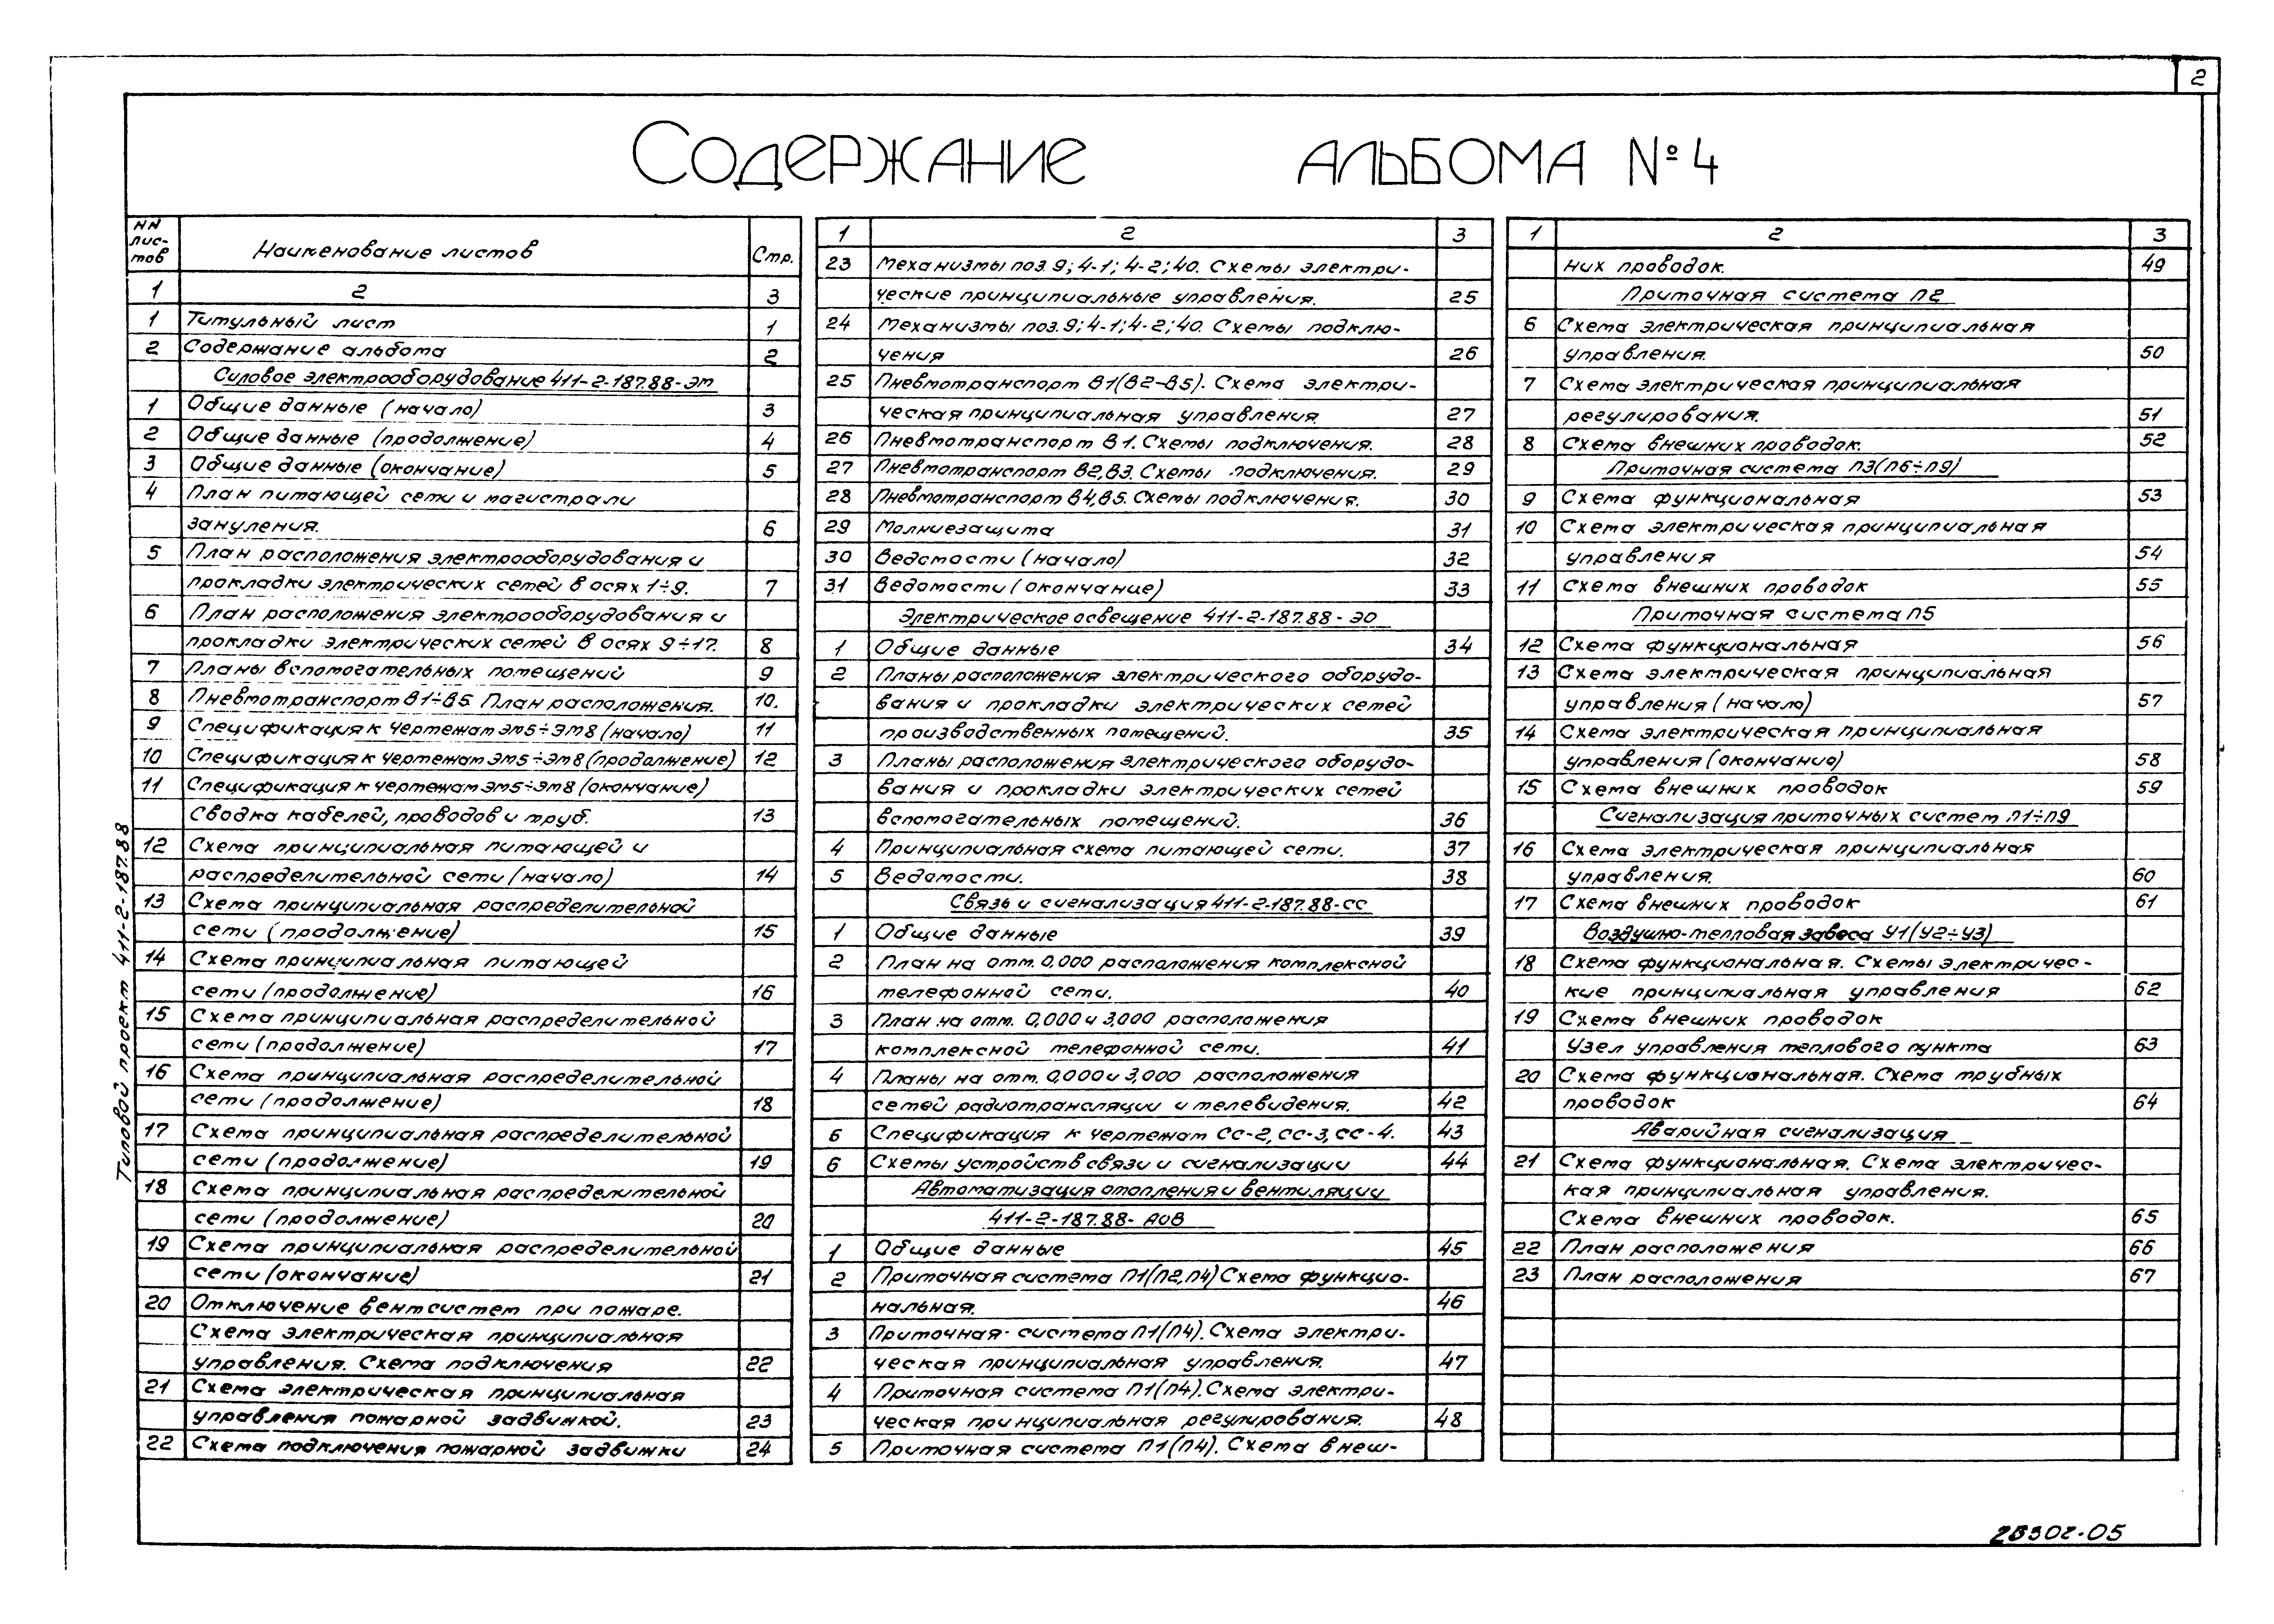 2
Содержание альбома № 4
NN лис- тов Наименование листов Стр.
1 2 3
1 Титульный лист 1
2 Содержание альбома 2
Силовое электрооборудование 411-2-187.88-ЭМ
1 Общие данные (начало) 3
2 Общие данные (продолжение) 4
3 Общие данные (окончание) 5
4 План питающей сети и магистрали
зануления. 6
5 План расположения электрооборудования и
прокладки электрических сетей в осях 1÷9. 7
6 План расположения электрооборудования и
прокладки электрических сетей в осях 9÷17. 8
7 Планы вспомогательных помещений 9
8 Пневмотранспорт В1÷В5. План расположения. 10.
9 Спецификация к чертежам ЭМ5÷ЭМ8 (начало) 11
10 Спецификация к чертежам ЭМ5÷ЭМ8 (продолжение) 12
11 Спецификация к чертежам ЭМ5÷ЭМ8 (окончание)
Сводка кабелей, проводов и труб. 13
12 Схема принципиальная питающей и
распределительной сети (начало) 14
13 Схема принципиальная распределительной
сети (продолжение) 15
14 Схема принципиальная питающей
сети (продолжение) 16
15 Схема принципиальная распределительной
сети (продолжение) 17
16 Схема принципиальная распределительной
сети (продолжение) 18
17 Схема принципиальная распределительной
сети (продолжение) 19
18 Схема принципиальная распределительной
сети (продолжение) 20
19 Схема принципиальная распределительной
сети (окончание) 21
20 Отключение вентсистем при пожаре.
Схема электрическая принципиальная
управления. Схема подключения 22
21 Схема электрическая принципиальная
управления пожарной задвижкой. 23
22 Схема подключения пожарной задвижки 24
1 2 3
23 Механизмы поз. 9; 4-1; 4-2; 40. Схемы электри-
ческие принципиальные управления. 25
24 Механизмы поз. 9; 4-1; 4-2; 40. Схемы подклю-
чения 26
25 Пневмотранспорт В1(В2–В5). Схема электри-
ческая принципиальная управления 27
26 Пневмотранспорт В1. Схемы подключения. 28
27 Пневмотранспорт В2,В3. Схемы подключения. 29
28 Пневмотранспорт В4,В5. Схемы подключения. 30
29 Молниезащита 31
30 Ведомости (начало) 32
31 Ведомости (окончание) 33
Электрическое освещение 411-2-187.88-ЭО
1 Общие данные 34
2 Планы расположения электрического оборудо-
вания и прокладки электрических сетей
производственных помещений. 35
3 Планы расположения электрического оборудо-
вания и прокладки электрических сетей
вспомогательных помещений. 36
4 Принципиальная схема питающей сети. 37
5 Ведомости. 38
Связь и сигнализация 411-2-187.88-СС
1 Общие данные 39
2 План на отм. 0,000 расположения комплексной
телефонной сети. 40
3 План на отм. 0,000 и 3,000 расположения
комплексной телефонной сети. 41
4 Планы на отм. 0,000 и 3,000 расположения
сетей радиотрансляции и телевидения. 42
6 Спецификация к чертежам СС-2, СС-3, СС-4. 43
6 Схемы устройств связи и сигнализации 44
Автоматизация отопления и вентиляции
411-2-187.88-АОВ
1 Общие данные 45
2 Приточная система П1(П2,П4) Схема функцио-
нальная. 46
3 Приточная система П1(П4). Схема электри-
ческая принципиальная управления. 47
4 Приточная система П1(П4). Схема электри-
ческая принципиальная регулирования. 48
5 Приточная система П1(П4). Схема внеш-
1 2 3
них проводок. 49
Приточная система П2
6 Схема электрическая принципиальная
управления. 50
7 Схема электрическая принципиальная
регулирования. 51
8 Схема внешних проводок. 52
Приточная система П3(П6÷П9)
9 Схема функциональная 53
10 Схема электрическая принципиальная
управления 54
11 Схема внешних проводок 55
Приточная система П5
12 Схема функциональная 56
13 Схема электрическая принципиальная
управления (начало) 57
14 Схема электрическая принципиальная
управления (окончание) 58
15 Схема внешних проводок 59
Сигнализация приточных систем П1÷П9
16 Схема электрическая принципиальная
управления. 60
17 Схема внешних проводок 61
Воздушно-тепловая завеса У1(У2÷У3)
18 Схема функциональная. Схемы электричес-
кие принципиальная управления 62
19 Схема внешних проводок
Узел управления теплового пункта 63
20 Схема функциональная. Схема трубных
проводок 64
Аварийная сигнализация
21 Схема функциональная. Схема электричес-
кая принципиальная управления.
Схема внешних проводок. 65
22 План расположения 66
23 План расположения 67
Типовой проект 411-2-187.88
23302-05